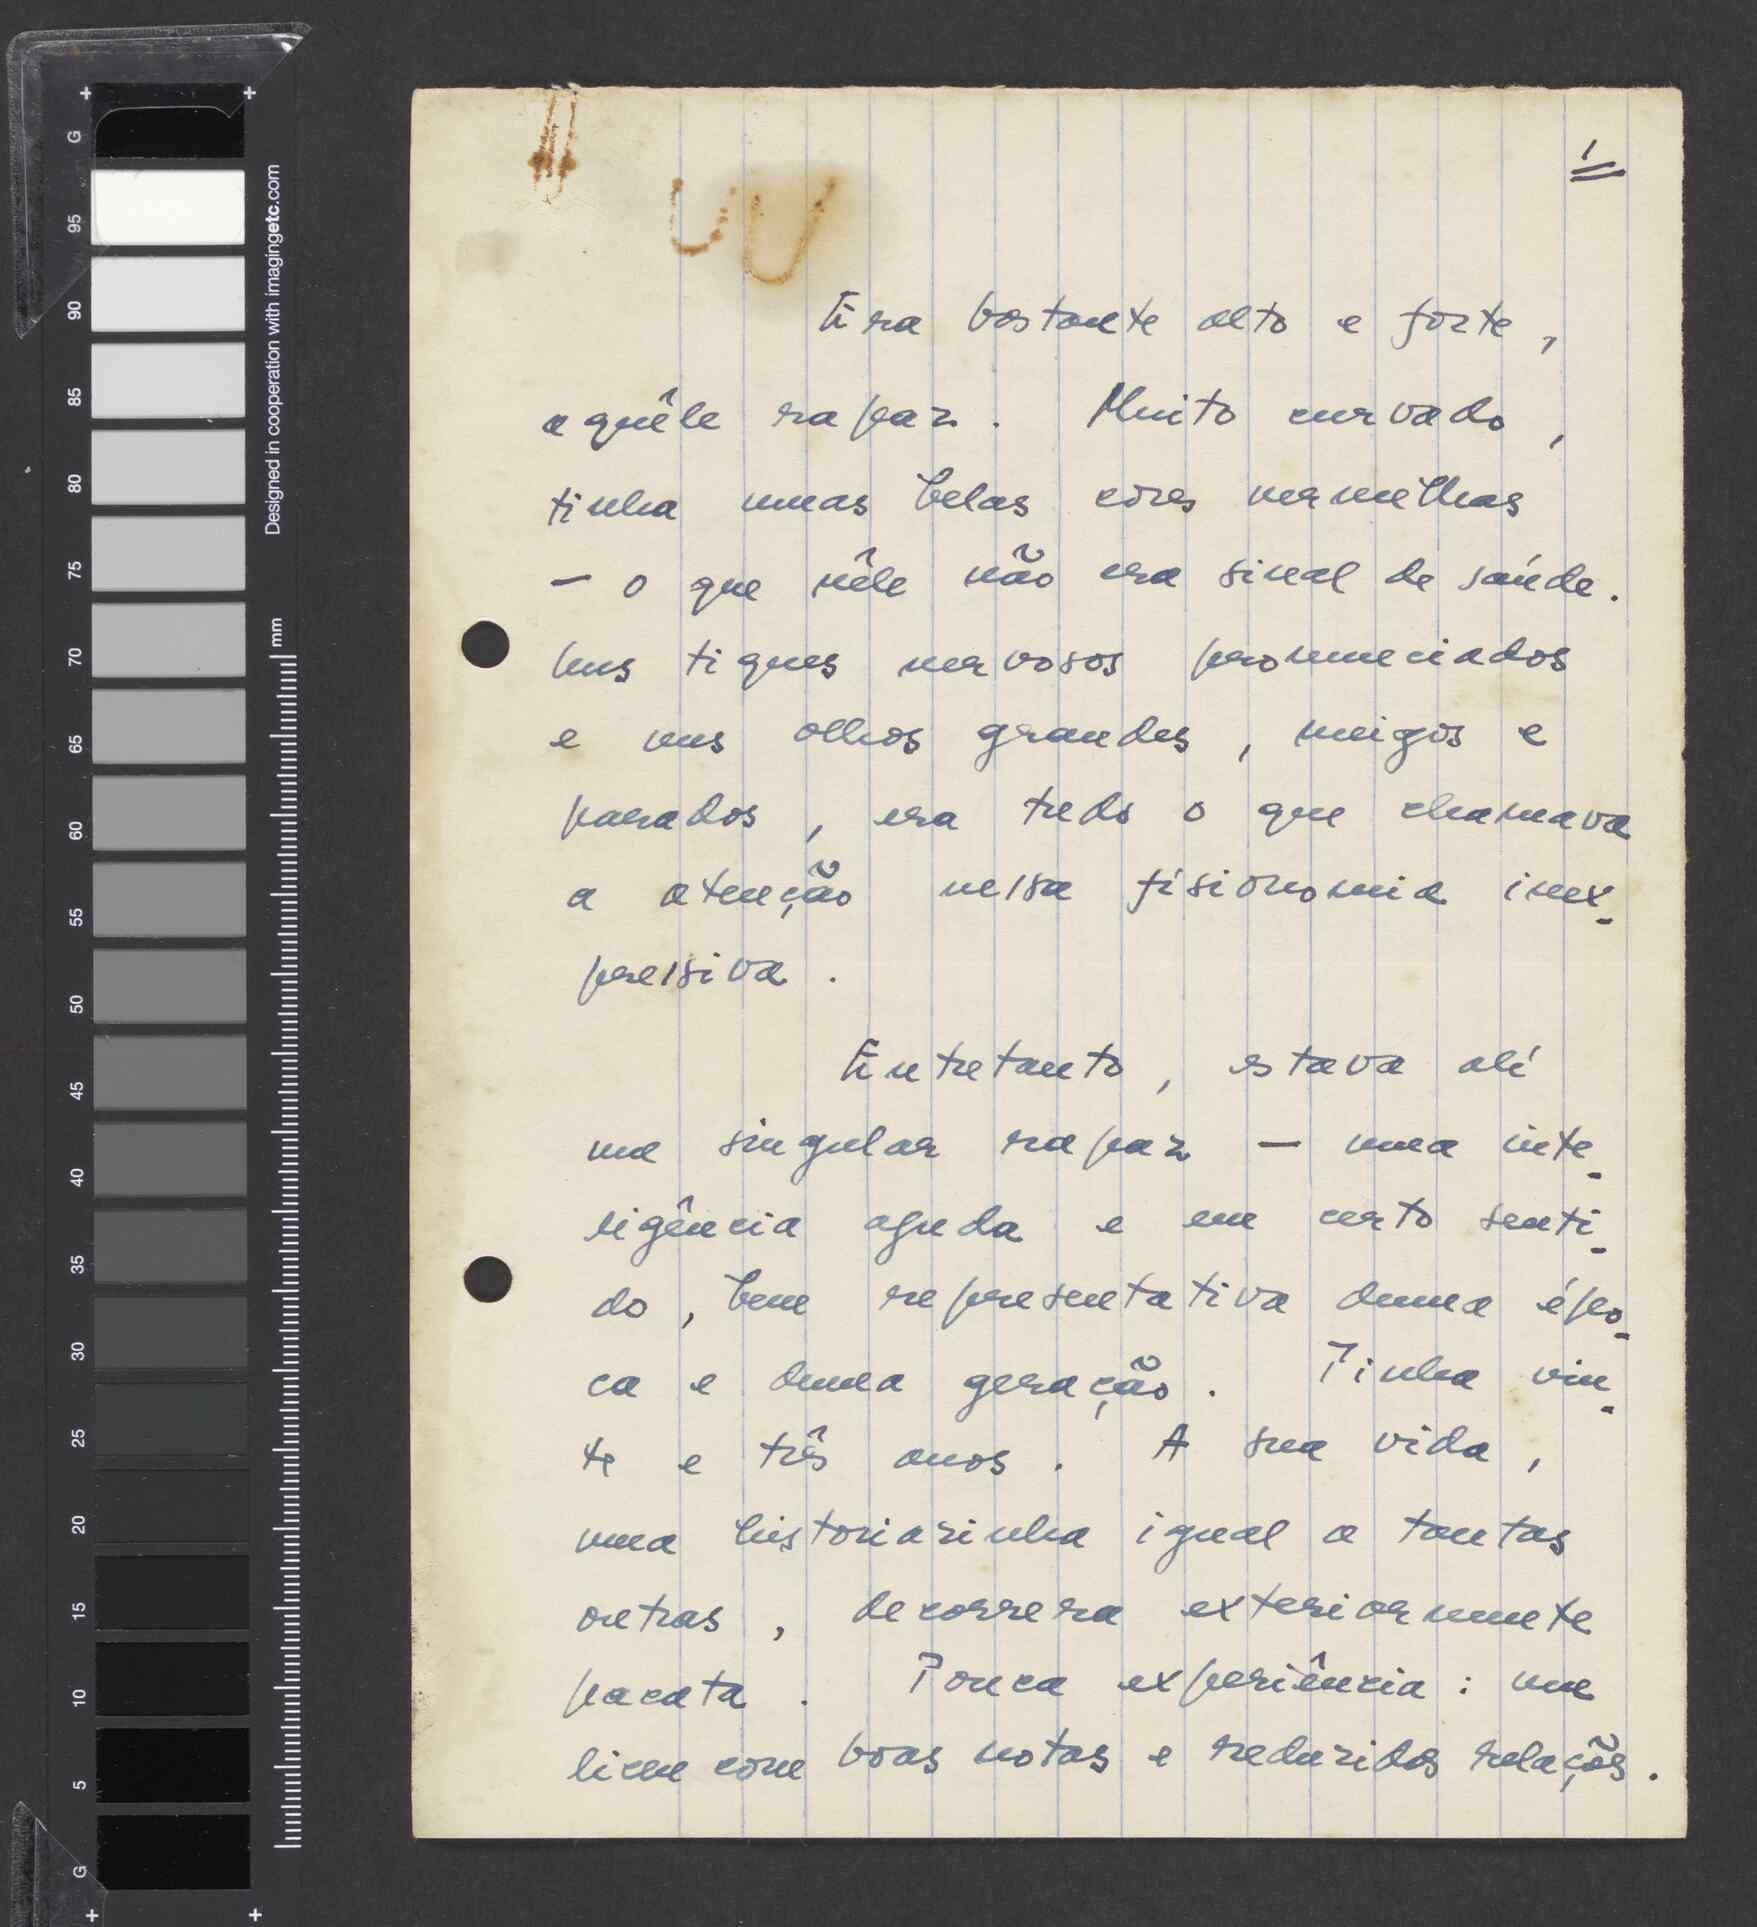 1
Era bastante alto e forte,
aquêle rapaz. Muito curvado,
tinha umas belas côres vermelhas
— o que nêle não era sinal de saúde.
Uns tiques nervosos pronunciados
e uns olhos grandes, meigos e
parados, era tudo o que chamava
a atenção nessa fisionomia inex-
pressiva.
Entretanto, estava alí
um singular rapaz — uma inte-
ligência aguda e em certo senti-
do, bem representativa duma épo-
ca e duma geração. Tinha vin-
te e três anos. A sua vida,
uma historiazinha igual a tantas
outras, decorrera exteriormente
pacata. Pouca experiência: um
liceu com boas notas e reduzidas relações.
Designed in cooperation with imagingetc.com
mm
G
95
90
85
80
75
70
65
60
55
50
45
40
35
30
25
20
15
10
5
G